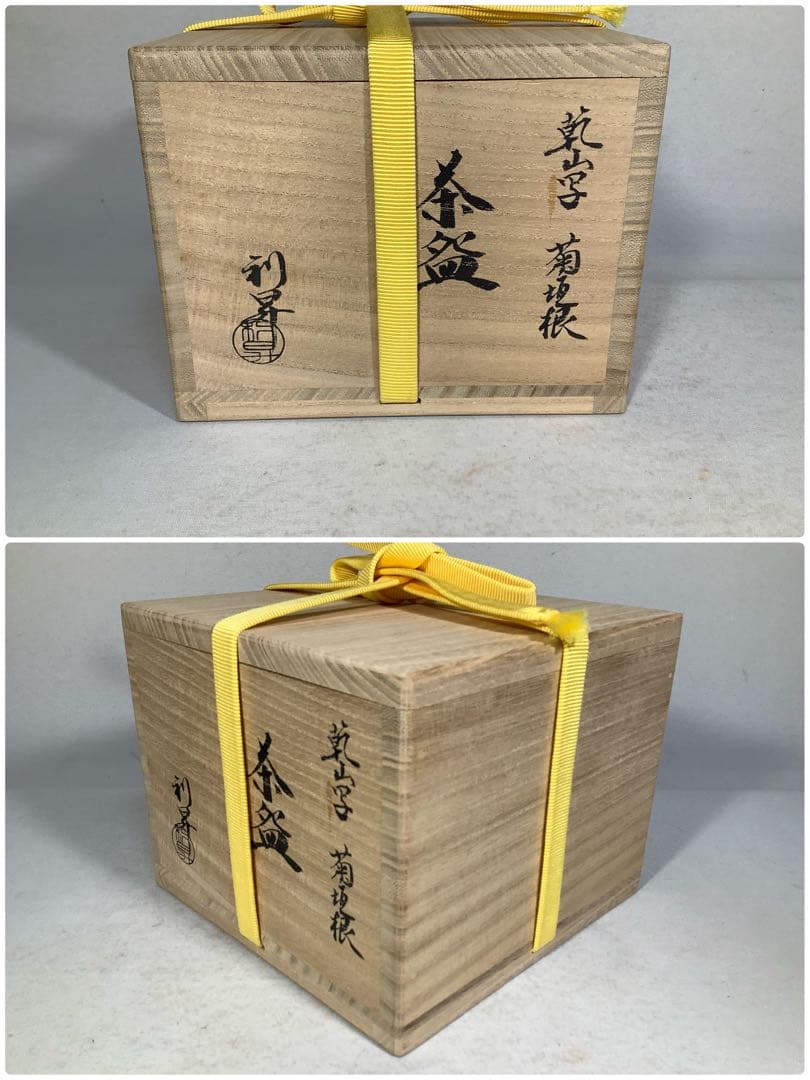 乾山写 菊垣根
茶盌
利昇
乾山写 菊垣根
茶盌
利昇